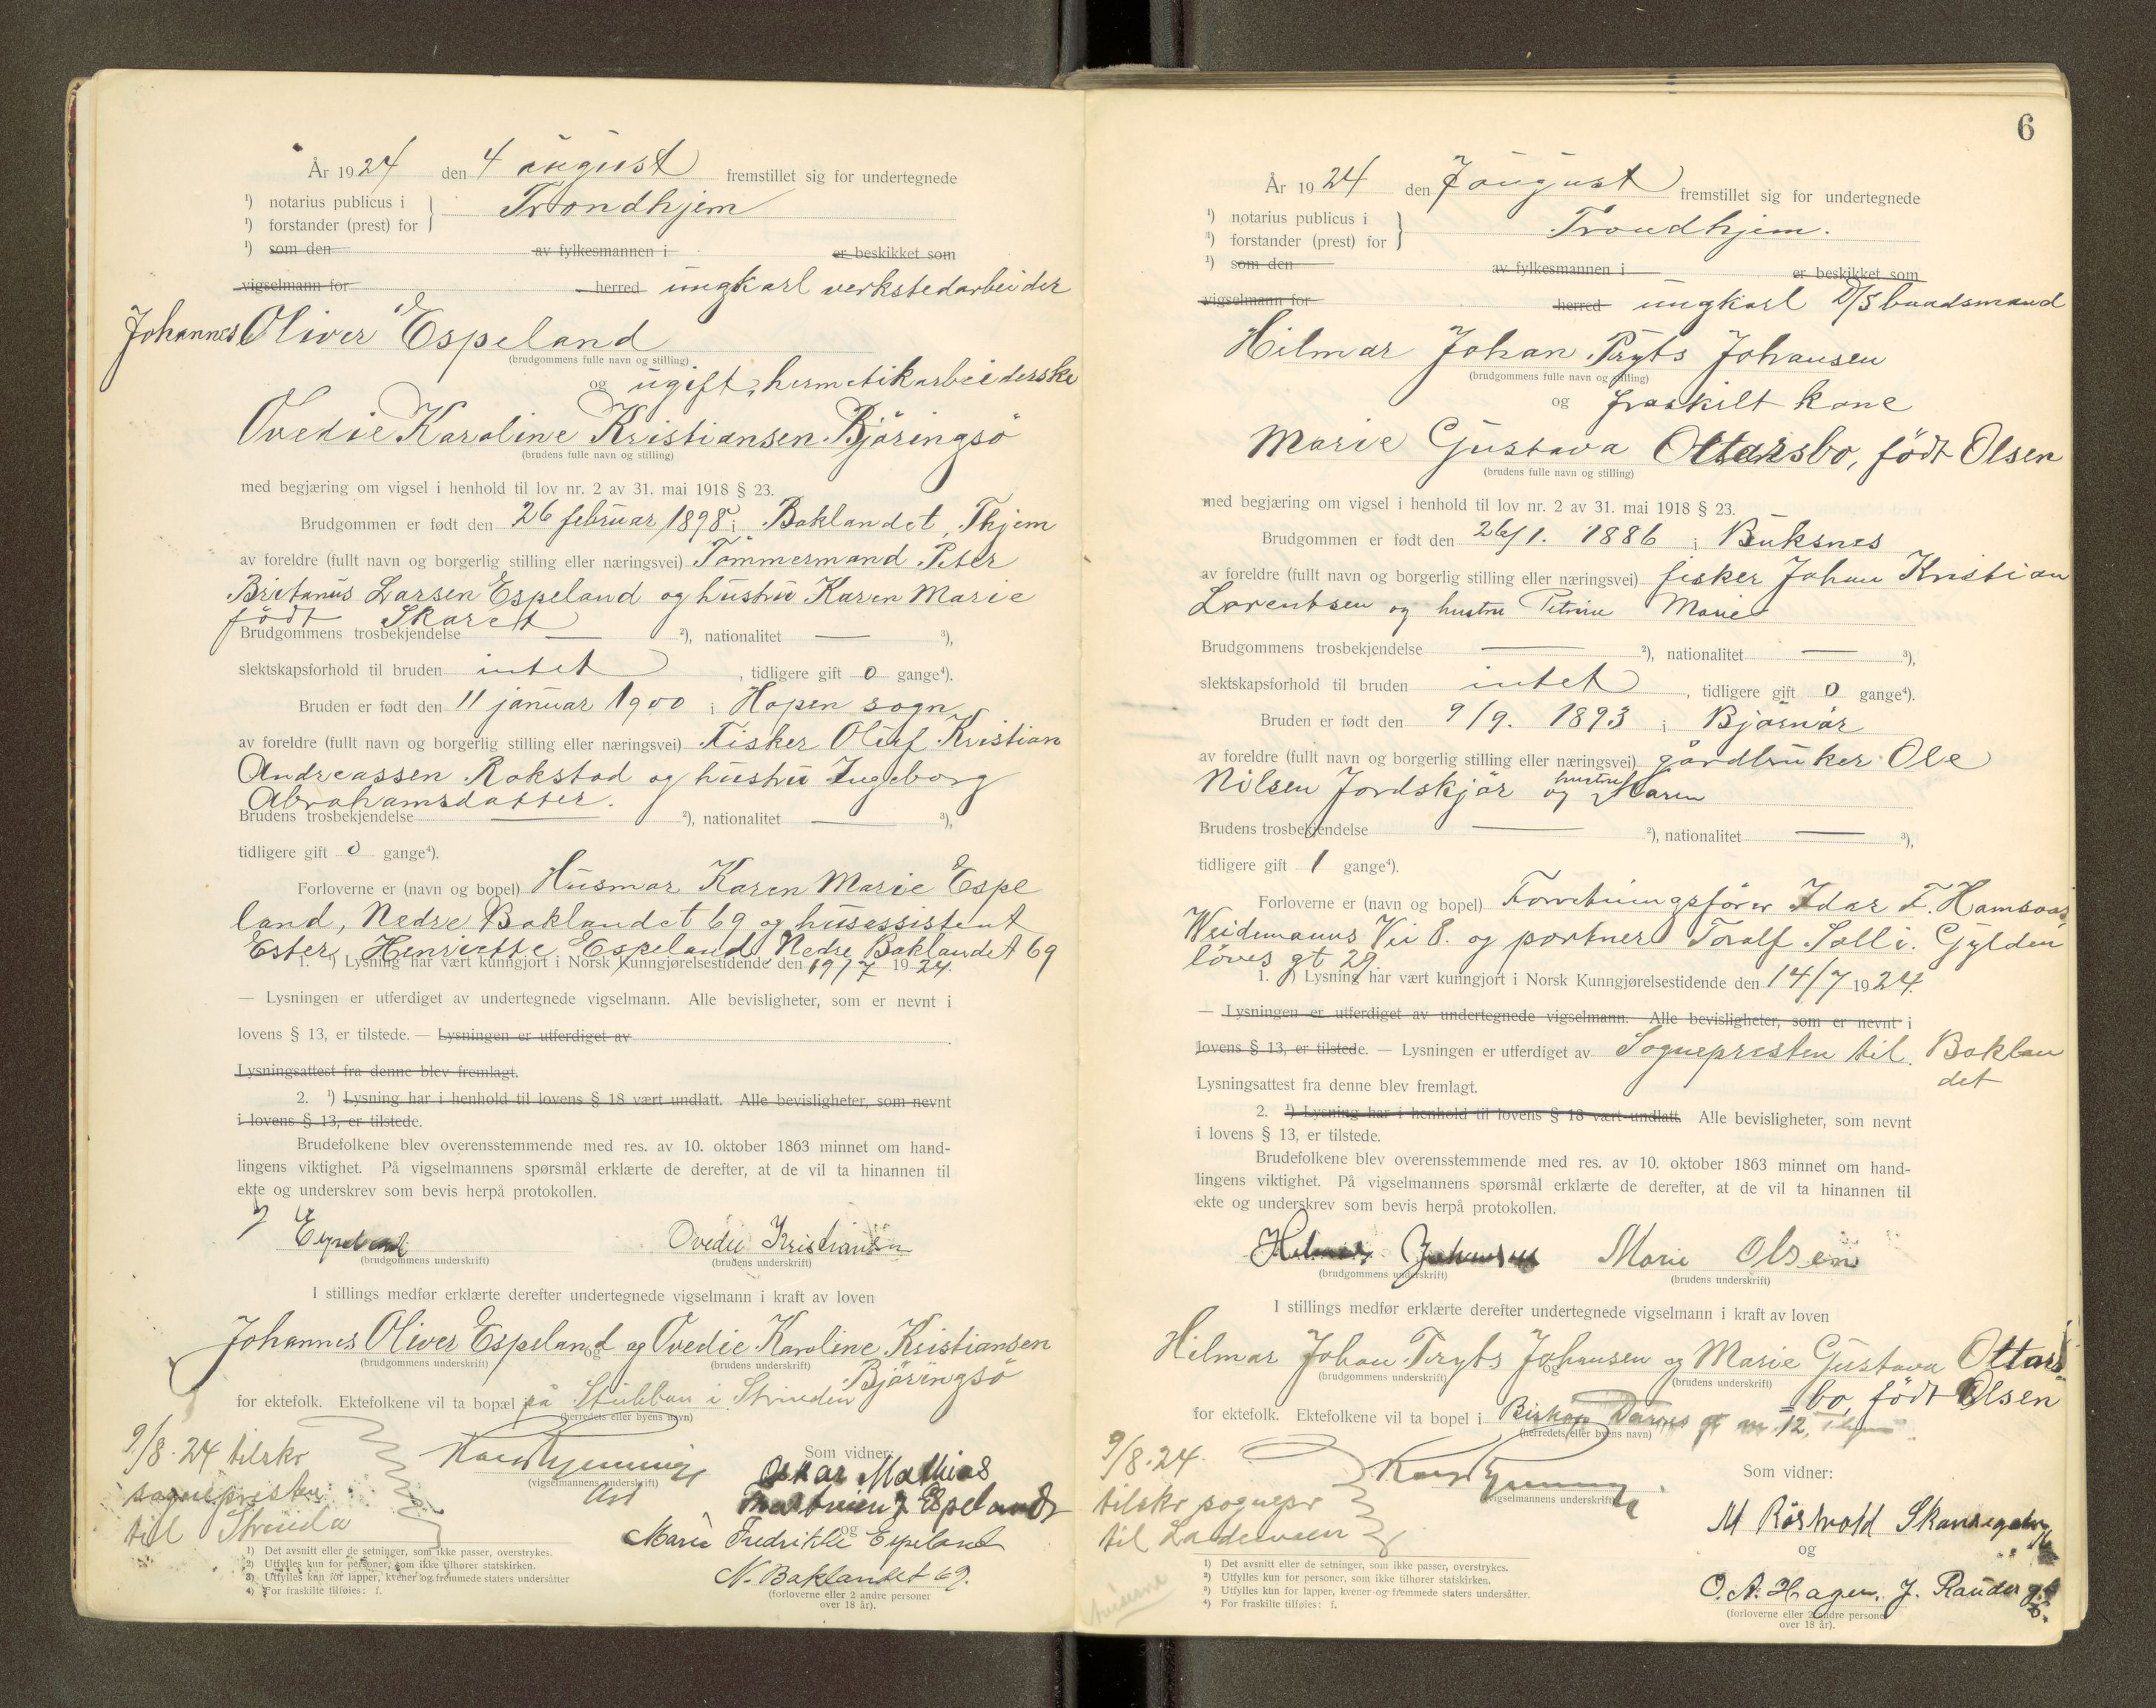 År 1924 den 4 august fremstillet sig for undertegnede
¹) notarius publicus i
¹) forstander (prest) for } Trondhjem
¹) som den av fylkesmannen i er beskikket som
vigselmann for herred ungkarl verkstedarbeider
Johannes Oliver Espeland
(brudgommens fulle navn og stilling)
og ugift, hermetikarbeiderske
Ovedie Karoline Kristiansen Björingsö
(brudens fulle navn og stilling)
med begjæring om vigsel i henhold til lov nr. 2 av 31. mai 1918 § 23.
Brudgommen er født den 26 februar 1898 i Baklandet, Thjem
av foreldre (fullt navn og borgerlig stilling eller næringsvei) Tömmermand Peter
Britanus Larsen Espeland og hustru Karen Marie
født Skaret
Brudgommens trosbekjendelse — ²), nationalitet — ³),
slektskapsforhold til bruden intet, tidligere gift 0 gange⁴).
Bruden er født den 11 januar 1900 i Hopen sogn
av foreldre (fullt navn og borgerlig stilling eller næringsvei) Fisker Oluf Kristian
Andreassen Rokstad og hustru Ingeborg
Abrahamsdatter.
Brudens trosbekjendelse — ²), nationalitet — ³),
tidligere gift 0 gange⁴).
Forloverne er (navn og bopel) Husmor Karen Marie Espe
land, Nedre Baklandet 69 og husassistent
Ester Henriette Espeland Nedre Baklandet 69
1. ¹) Lysning har vært kunngjort i Norsk Kunngjørelsestidende den 19/7 1924.
— Lysningen er utferdiget av undertegnede vigselmann. Alle bevisligheter, som er nevnt i
lovens § 13, er tilstede. — Lysningen er utferdiget av
Lysningsattest fra denne blev fremlagt.
2. ¹) Lysning har i henhold til lovens § 18 vært undlatt. Alle bevisligheter, som nevnt
i lovens § 13, er tilstede.
Brudefolkene blev overensstemmende med res. av 10. oktober 1863 minnet om hand-
lingens viktighet. På vigselmannens spørsmål erklærte de derefter, at de vil ta hinannen til
ekte og underskrev som bevis herpå protokollen.
J Espeland Ovedie Kristiansen
(brudgommens underskrift) (brudens underskrift)
I stillings medfør erklærte derefter undertegnede vigselmann i kraft av loven
Johannes Oliver Espeland og Ovedie Karoline Kristiansen
(brudgommens underskrift) og (brudens underskrift)
Björingsö
for ektefolk. Ektefolkene vil ta bopæl på Stubban i Strinden
(herredets eller byens navn)
9/8.24 tilskr
sogneprsten
til Strinda
(vigselmannens underskrift)
Som vidner:
Oskar Mathias
Espeland
og
Marie Fredrikke Espeland
N. Baklandet 69.
(forloverne eller 2 andre personer
over 18 år).
1) Det avsnitt eller de setninger, som ikke passer, overstrykes.
2) Utfylles kun for personer, som ikke tilhører statskirken.
3) Utfylles kun for lapper, kvener og fremmede staters undersåtter
4) For fraskilte tilføies: f.
6
År 1924 den 7 august fremstillet sig for undertegnede
¹) notarius publicus i
¹) forstander (prest) for } Trondhjem.
¹) som den av fylkesmannen i er beskikket som
vigselmann for herred ungkarl D/S baadsmand
Hilmar Johan Pryts Johansen
(brudgommens fulle navn og stilling)
og fraskilt kone
Marie Gustava Ottarsbo, født Olsen
(brudens fulle navn og stilling)
med begjæring om vigsel i henhold til lov nr. 2 av 31. mai 1918 § 23.
Brudgommen er født den 26/1. 1886 i Buksnes
av foreldre (fullt navn og borgerlig stilling eller næringsvei) fisker Johan Kristian
Lorentsen og hustru Petrine Marie
Brudgommens trosbekjendelse — ²), nationalitet — ³),
slektskapsforhold til bruden intet, tidligere gift 0 gange⁴).
Bruden er født den 9/9. 1893 i Bjørnör
av foreldre (fullt navn og borgerlig stilling eller næringsvei) gårdbruker Ole
Nilsen Jordskjär og hustru Karen
Brudens trosbekjendelse — ²), nationalitet — ³),
tidligere gift 1 gange⁴).
Forloverne er (navn og bopel) Forretningsfører Idar F. Hamsaas
Weidemanns Vei 8. og portner Toralf Solli. Gylden
löves gt 29
1. ¹) Lysning har vært kunngjort i Norsk Kunngjørelsestidende den 14/7 1924.
— Lysningen er utferdiget av undertegnede vigselmann. Alle bevisligheter, som er nevnt i
lovens § 13, er tilstede. — Lysningen er utferdiget av Sognepresten til Baklan
det
Lysningsattest fra denne blev fremlagt.
2. ¹) Lysning har i henhold til lovens § 18 vært undlatt. Alle bevisligheter, som nevnt
i lovens § 13, er tilstede.
Brudefolkene blev overensstemmende med res. av 10. oktober 1863 minnet om hand-
lingens viktighet. På vigselmannens spørsmål erklærte de derefter, at de vil ta hinannen til
ekte og underskrev som bevis herpå protokollen.
Hilmar Johansen Marie Olsen
(brudgommens underskrift) (brudens underskrift)
I stillings medfør erklærte derefter undertegnede vigselmann i kraft av loven
Hilmar Johan Pryts Johansen og Marie Gustava Ottars-
(brudgommens underskrift) og (brudens underskrift)
bo, født Olsen
for ektefolk. Ektefolkene vil ta bopel i Biskop Darres gt nr 12,
(herredets eller byens navn)
9/8.24.
tilskr sognepr
til Lademoen
(vigselmannens underskrift)
Som vidner:
M Röstvold
og
O. A. Hagen, J.
(forloverne eller 2 andre personer
over 18 år).
¹) Det avsnitt eller de setninger, som ikke passer, overstrykes.
²) Utfylles kun for personer, som ikke tilhører statskirken.
³) Utfylles kun for lapper, kvener og fremmede staters undersåtter.
⁴) For fraskilte tilføies: f.